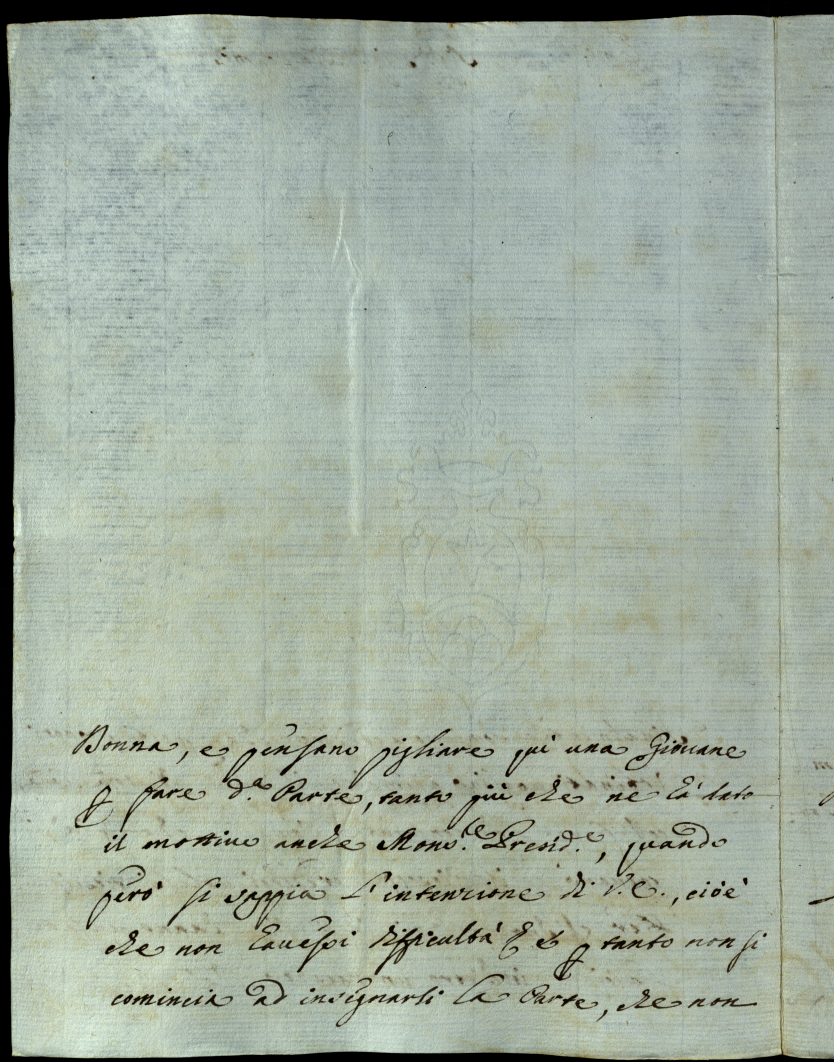 Bonna, e pensano pigliare qui una Giovane
p fare d.ª Parte, tanto più che ne hà dato
il mottivo anche Mons.re Presid.e, quando
però si sappia l'intenzione di V.E., cioè
che non havessi difficultà e p tanto non si
comincia ad insegnarli la Parte, che non